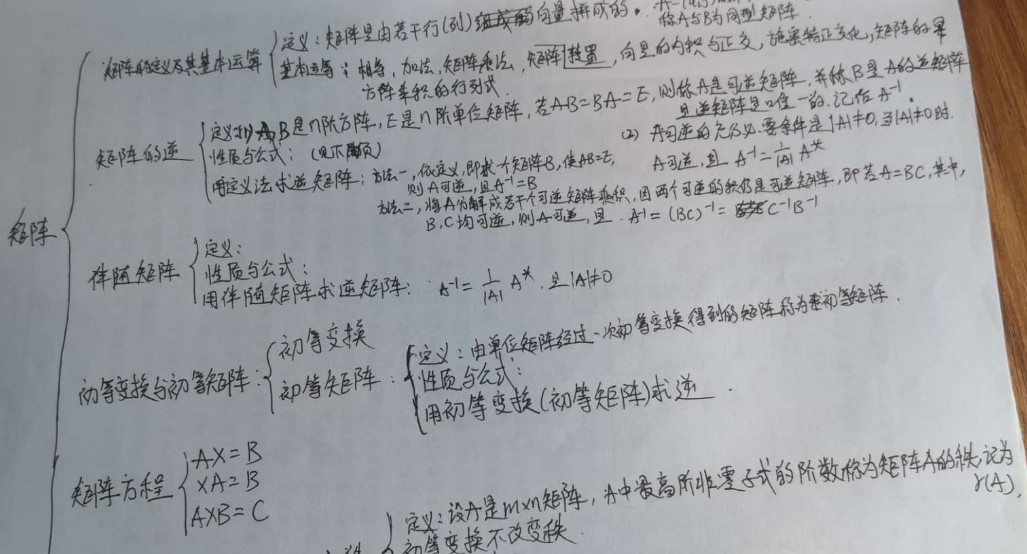 矩阵
矩阵的定义及其基本运算
定义：矩阵是由若干行(列)向量拼成的。
称A与B为同型矩阵.
基本运算：相等，加法，矩阵乘法，矩阵转置，向量的内积与正交，施密特正交化，矩阵的幂
方阵乘积的行列式.
矩阵的逆
定义(1) A,B是n阶方阵，E是n阶单位矩阵，若AB=BA=E，则称A是可逆矩阵，并称B是A的逆矩阵
且逆矩阵是唯一的.记作 A⁻¹.
(2) A可逆的充分必要条件是|A|≠0,当|A|≠0时.
A可逆，且 A⁻¹=1/|A| A*
性质与公式：
用定义法求逆矩阵：方法一，依定义，即求一个矩阵B，使AB=E，
则A可逆，且A⁻¹=B
方法二，将A分解成若干个可逆矩阵乘积，因两个可逆的积仍是可逆矩阵，即若A=BC，其中，
B,C均可逆，则A可逆，且 A⁻¹=(BC)⁻¹= C⁻¹B⁻¹
伴随矩阵
定义：
性质与公式：
用伴随矩阵求逆矩阵： A⁻¹=1/|A| A*.且|A|≠0
初等变换与初等矩阵：
初等变换
初等矩阵：
定义：由单位矩阵经过一次初等变换得到的矩阵称为初等矩阵.
性质与公式：
用初等变换(初等矩阵)求逆.
矩阵方程
AX=B
XA=B
AXB=C
定义：设A是m×n矩阵，A中最高阶非零子式的阶数称为矩阵A的秩,记为
r(A).
初等变换不改变秩.